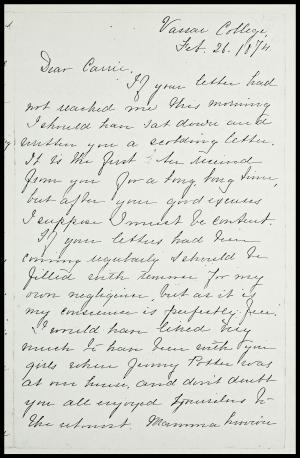 Vassar College,
Feb. 26. 1874.
Dear Carrie.
If your letter had
not reached me this morning
I should have sat down and
written you a scolding letter.
It is the first I've received
from you for a long, long time,
but after your good excuses
I suppose I must be content.
If your letters had been
coming regularly I should be
filled with remorse for my
own negligence, but as it is
my conscience is perfectly free.
I would have liked very
much to have been with you
girls when Jenny Potter was
at our house, and don't doubt
you all enjoyed yourselves to
the utmost. Mamma